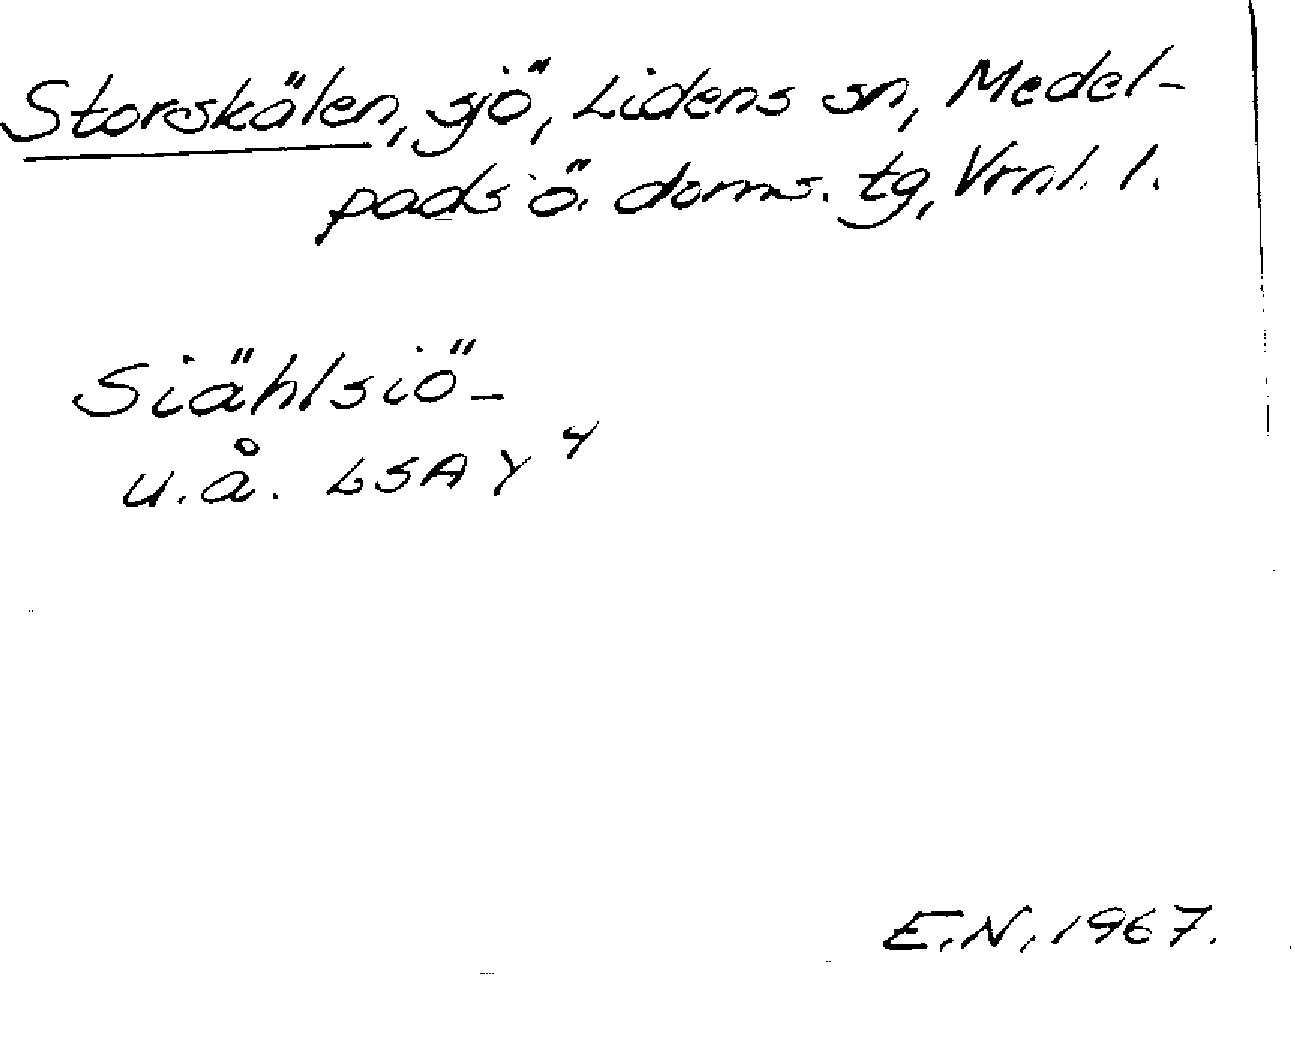 Storskälen, sjö, Lidens sn, Medel-
pads ö. doms. tg, Vrnl. l.
Siählsiö-
u.å. LSA Y 4
E.N. 1967.